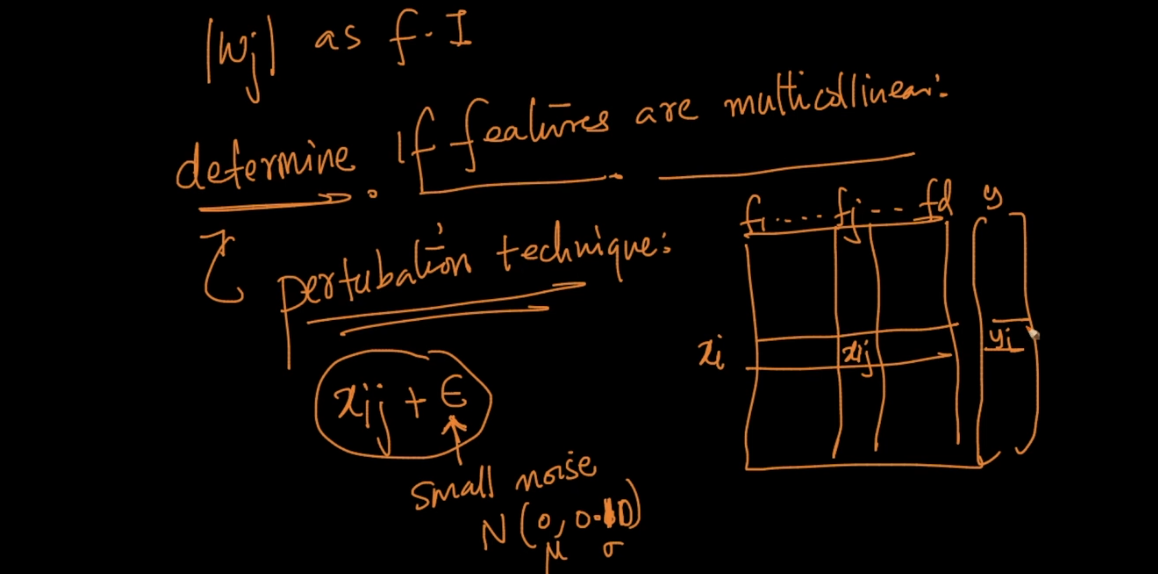 |wj| as f.I
determine. If features are multicollinear:
pertubation technique:
xij + ϵ
small noise
N(0, 0.10)
μ σ
f1.... fj -- fd y
xi xij yi